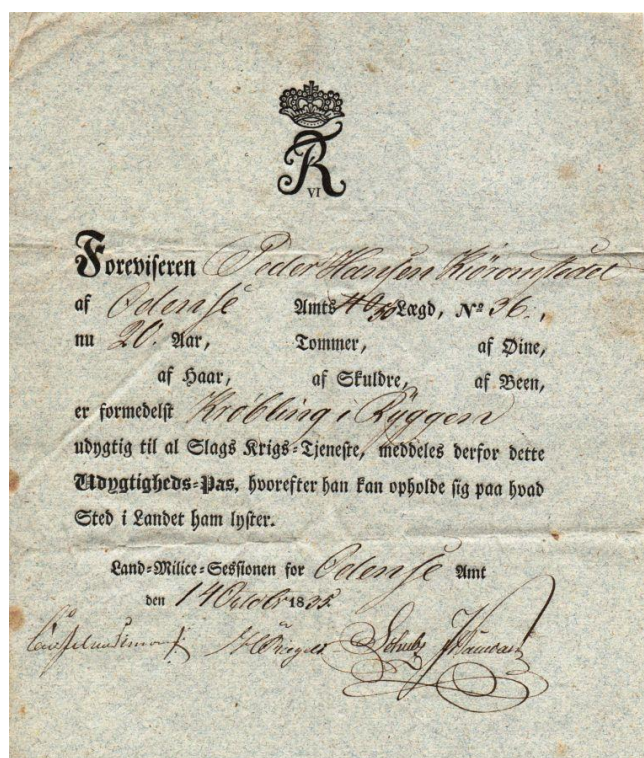 FR
VI
Foreviseren Peder Hansen
af Odense Amts Lægd, No 36.,
nu 20. Aar, Tommer, af Øine,
af Haar, af Skuldre, af Been,
er formedelst Krøbling i Ryggen
udygtig til al Slags Krigs-Tjeneste, meddeles derfor dette
Udygtigheds-Pas, hvorefter han kan opholde sig paa hvad
Sted i Landet ham lyster.
Land-Milice-Sessionen for Odense Amt
den 14 Octobr 1835.
Schulz